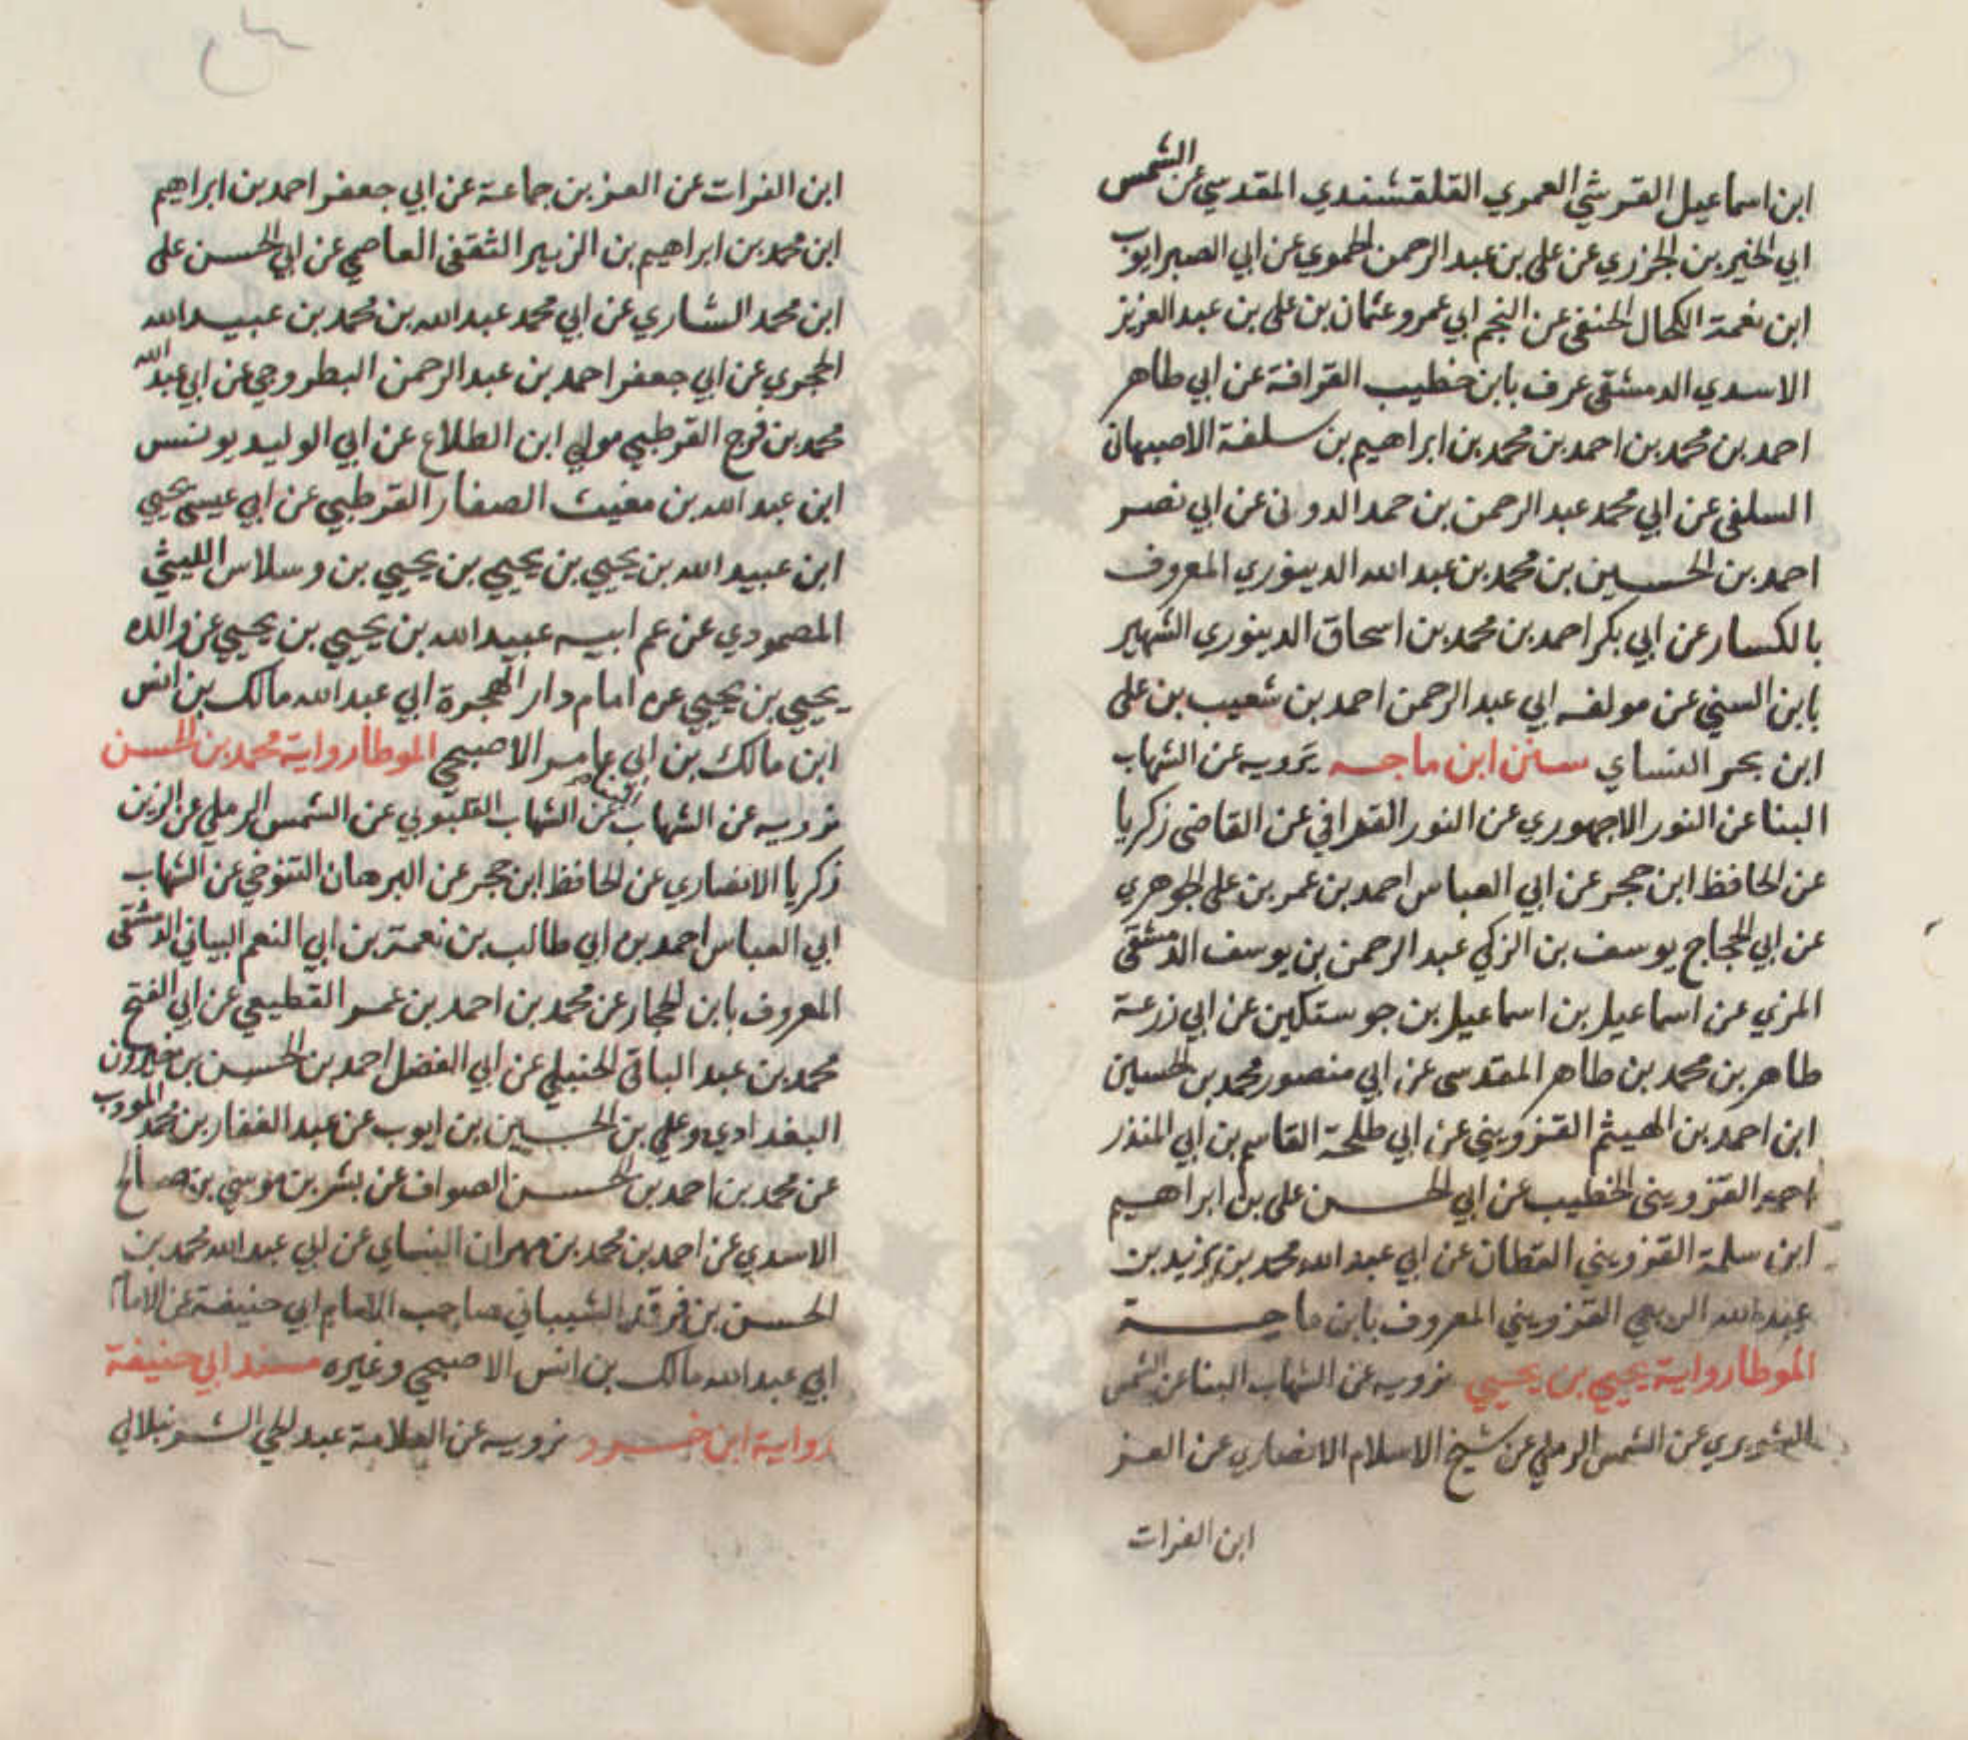 ابن اسماعيل القرشي العمري القلقشندي المقدسي عن الشمس
ابي الخير بن الجزري عن على بن عبد الرحمن الحموي عن ابي الصبر ايوب
ابن نعمة الكحال الحنفى عن النجم ابي عمرو عثمان بن على بن عبد العزيز
الاسدي الدمشقى عرف بابن خطيب القرافة عن ابي طاهر
احمد بن محمد بن احمد بن محمد بن ابراهيم بن سلفة الاصبهانى
السلفى عن ابي محمد عبد الرحمن بن حمد الدونى عن ابي نصر
احمد بن الحسين بن محمد بن عبد الله الدينوري المعروف
بالكسار عن ابي بكر احمد بن محمد بن اسحاق الدينوري الشهير
بابن السني عن مولفه ابي عبد الرحمن احمد بن شعيب بن على
ابن بحر النساي سنن ابن ماجه نرويه عن الشهاب
البنا عن النور الاجهوري عن النور القرافي عن القاضى زكريا
عن الحافظ ابن حجر عن ابي العباس احمد بن عمر بن على الجوهري
عن ابي الحجاج يوسف بن الزكي عبد الرحمن بن يوسف الدمشقى
المزي عن اسماعيل بن اسماعيل بن جوستكين عن ابي زرعة
طاهر بن محمد بن طاهر المقدسى عن ابي منصور محمد بن الحسين
ابن احمد بن الهيثم القزويني عن ابي طلحة القاسم بن ابي المنذر
احمد القزوينى الخطيب عن ابي الحسن على بن ابراهيم
ابن سلمة القزويني القطان عن ابي عبد الله محمد بن يزيد بن
عبد الله الربعي القزويني المعروف بابن ماجة
الموطا رواية يحيي بن يحيي نرويه عن الشهاب البنا عن الشمس
الشوبري عن الشمس الرملي عن شيخ الاسلام الانصاري عن العز
ابن الفرات
ابن الفرات عن العز بن جماعة عن ابي جعفر احمد بن ابراهيم
ابن محمد بن ابراهيم بن الزبير الثقفى العاصمي عن ابي الحسن على
ابن محمد الشاري عن ابي محمد عبد الله بن محمد بن عبيد الله
الحجري عن ابي جعفر احمد بن عبد الرحمن البطروجي عن ابي عبد الله
محمد بن فرج القرطبي مولي ابن الطلاع عن ابي الوليد يونس
ابن عبد الله بن مغيث الصفار القرطبي عن ابي عيسى يحيي
ابن عبيد الله بن يحيي بن يحيي بن يحيي بن وسلاس الليثي
المصمودي عن عم ابيه عبيد الله بن يحيي بن يحيي عن والده
يحيي بن يحيي عن امام دار الهجرة ابي عبد الله مالك بن انس
ابن مالك بن ابي عامر الاصبحي الموطا رواية محمد بن الحسن
نرويه عن الشهاب البنا عن الشهاب القليوبي عن الشمس الرملي عن الزين
زكريا الانصاري عن الحافظ ابن حجر عن البرهان التنوخي عن الشهاب
ابي العباس احمد بن ابي طالب بن نعمة بن ابي النعم البياني الدمشقى
المعروف بابن الحجار عن محمد بن احمد بن عمر القطيعي عن ابي الفتح
محمد بن عبد الباقى الحنبلي عن ابي الفضل احمد بن الحسن بن خيرون
البغدادي وعلي بن الحسين بن ايوب عن عبد الغفار بن محمد المودب
عن محمد بن احمد بن الحسن الصواف عن بشر بن موسي بن صالح
الاسدي عن احمد بن محمد بن مهران النساي عن ابي عبد الله محمد بن
الحسن بن فرقد الشيباني صاحب الامام ابي حنيفة عن الامام
ابي عبد الله مالك بن انس الاصبحي وغيره مسند ابي حنيفة
رواية ابن خسرو نرويه عن العلامة عبد الحي الشرنبلالي